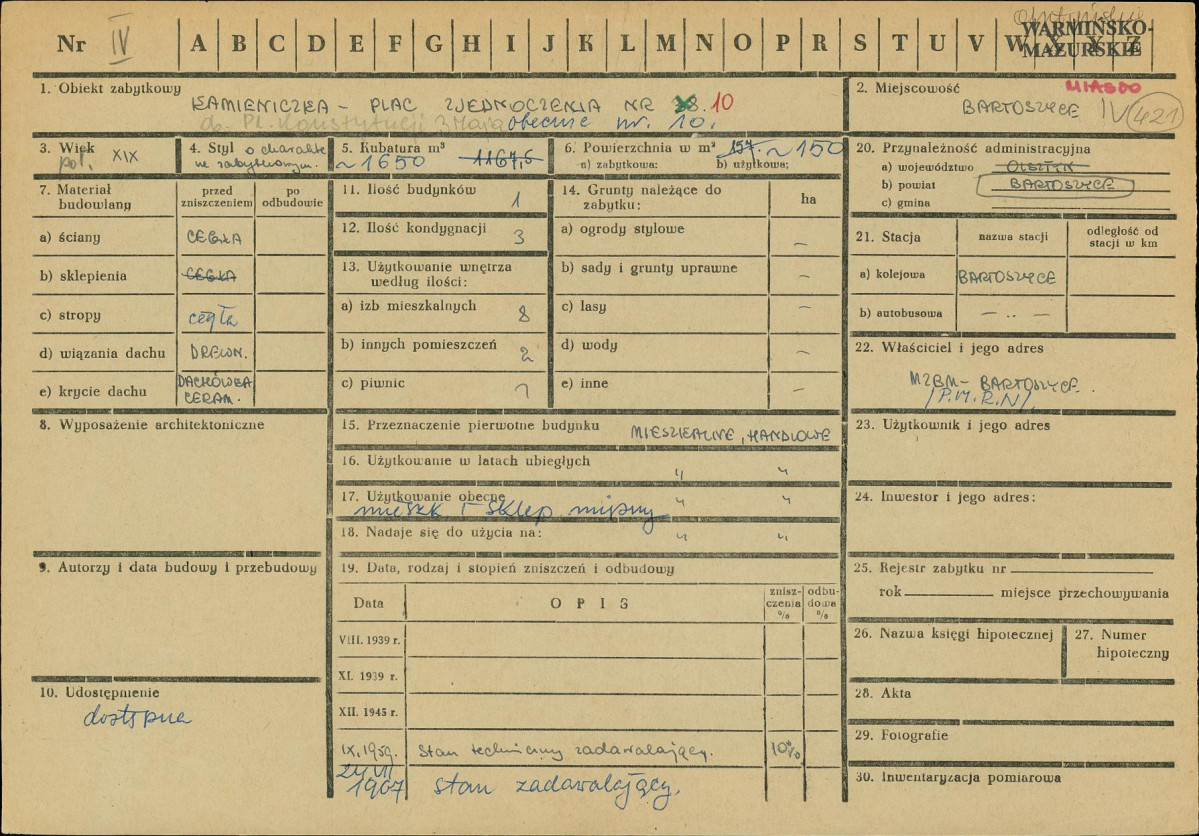 Nr IV A B C D E F G H I J K L M N O P R S T U V W X Y Z
WARMIŃSKO-
MAZURSKIE
1. Obiekt zabytkowy
KAMIENICZKA - PLAC ZJEDNOCZENIA NR 10
Pl. Konstytucji 3 Maja obecnie nr. 10.
2. Miejscowość MIASDO
BARTOSZYCE IV 421
3. Wiek
poł. XIX
4. Styl o charakte
rze zabytkowym.
5. Kubatura m³
~1650 1167,5
6. Powierzchnia w m² 157 ~150
a) zabytkowa: b) użytkowa:
20. Przynależność administracyjna
a) województwo OLSZTYN
b) powiat BARTOSZYCE
c) gmina
7. Materiał budowlany
przed zniszczeniem
po odbudowie
a) ściany CEGŁA
b) sklepienia CEGŁA
c) stropy cegła
d) wiązania dachu DREWN.
e) krycie dachu DACHÓWKA CERAM.
8. Wyposażenie architektoniczne
9. Autorzy i data budowy i przebudowy
10. Udostępnienie
dostępna
11. Ilość budynków 1
12. Ilość kondygnacji 3
13. Użytkowanie wnętrza
według ilości:
a) izb mieszkalnych 8
b) innych pomieszczeń 2
c) piwnic 1
14. Grunty należące do
zabytku: ha
a) ogrody stylowe —
b) sady i grunty uprawne —
c) lasy —
d) wody —
e) inne —
15. Przeznaczenie pierwotne budynku MIESZKALNE, HANDLOWE
16. Użytkowanie w latach ubiegłych " "
17. Użytkowanie obecne " "
mieszk i sklep mięsny
18. Nadaje się do użycia na: " "
19. Data, rodzaj i stopień zniszczeń i odbudowy
Data OPIS zniszczenia % odbudowa %
VIII. 1939 r.
XI. 1939 r.
XII. 1945 r.
IX.1959. Stan techniczny zadawalający. 10%
24 VII
1967 stan zadawalający.
21. Stacja nazwa stacji odległość od stacji w km
a) kolejowa BARTOSZYCE
b) autobusowa — .. —
22. Właściciel i jego adres
MZBM - BARTOSZYCE.
/P.M.R.N/
23. Użytkownik i jego adres
24. Inwestor i jego adres:
25. Rejestr zabytku nr
rok miejsce przechowywania
26. Nazwa księgi hipotecznej
27. Numer hipoteczny
28. Akta
29. Fotografie
30. Inwentaryzacja pomiarowa